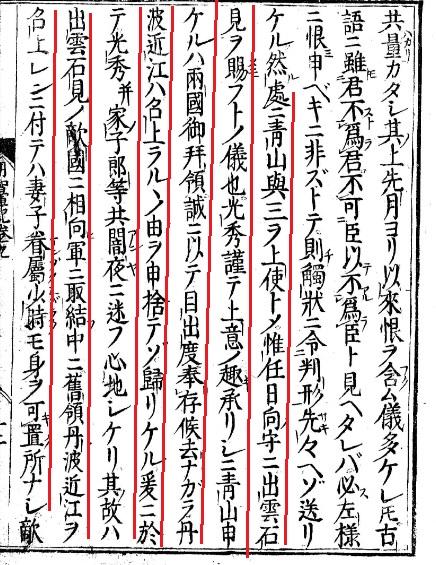 共量カタシ其上先月ヨリ以來恨ヲ含ム儀多ケレ𪜈古
語ニ雖君不爲君不可臣以不爲臣ト見ヘタレバ必左様
ニ恨申ベキニ非ズトテ則觸狀ニ令判形先々ヘゾ送リ
ケル然處ニ青山與三ヲ上使トノ惟任日向守ニ出雲石
見ヲ賜フトノ儀也光秀謹テ上意ノ趣承リシニ青山申
ケルハ兩國御拜領誠ニ以テ目出度奉存候去ナガラ丹
波近江ハ名上ラルヽノ由ヲ申捨テソ歸リケル爰ニ於
テ光秀幷家子郎等共闇夜ニ迷フ心地シケリ其故ハ
出雲石見ノ敵國ニ相向軍ニ取結中ニ舊領丹波近江ヲ
召上レンニ付テハ妻子眷屬少時モ身ヲ可置所ナシ敵